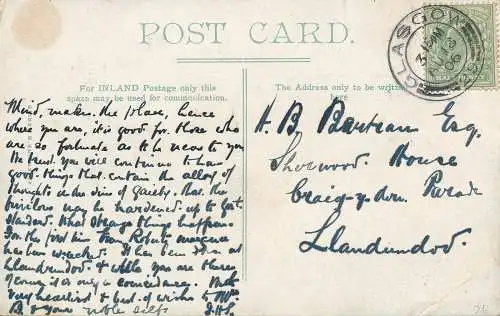 POST CARD
For INLAND Postage only this
space may be used for communication.
The Address only to be written
here
GLASGOW
06
Mind makes the place, hence
where you are, it is good for those who
are so fortunate as to be near to you
We trust you will continue to have
good things that contain the alloy of
thoughts in the of gaiety. that the
may be hardened up to Govt.
Standard. What strange things happen
For the first time
has been It has been done at
Llandrindod & while you are there
of course it is only a coincidence. With
very heartiest & best of wishes to Mrs
B & your noble self
H. B. Bertram Esq.
Sherwood House
Craig-y-don Parade
Llandundod.